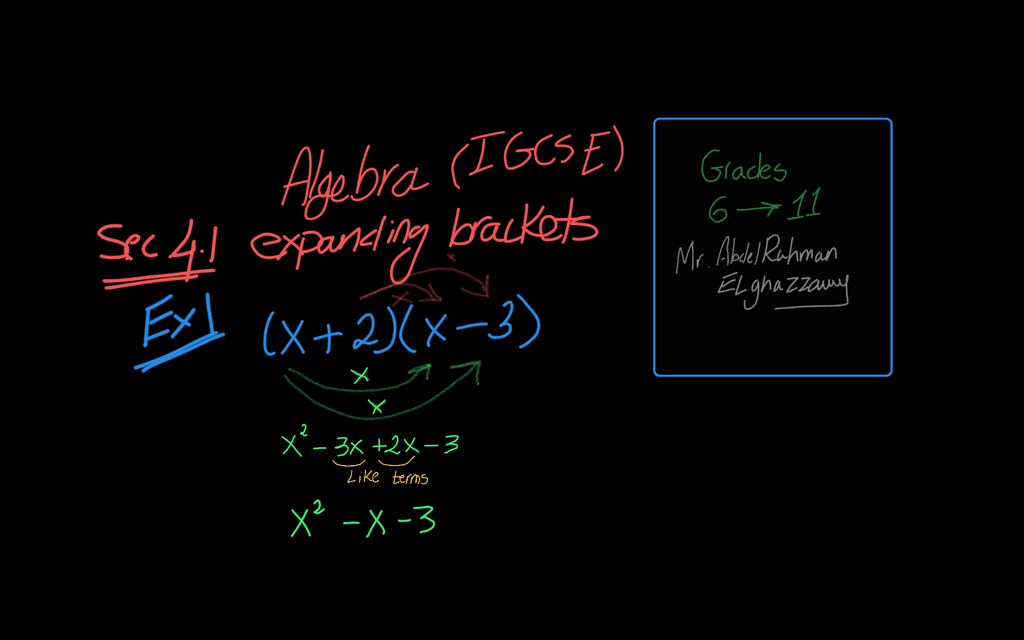 Algebra (IGCSE)
Sec 4.1 expanding brackets
Ex1 (x+2)(x-3)
x
x
x
x
x² - 3x +2x - 3
Like terms
x² - x - 3
Grades
6 → 11
Mr. AbdelRahman
ELghazzawy